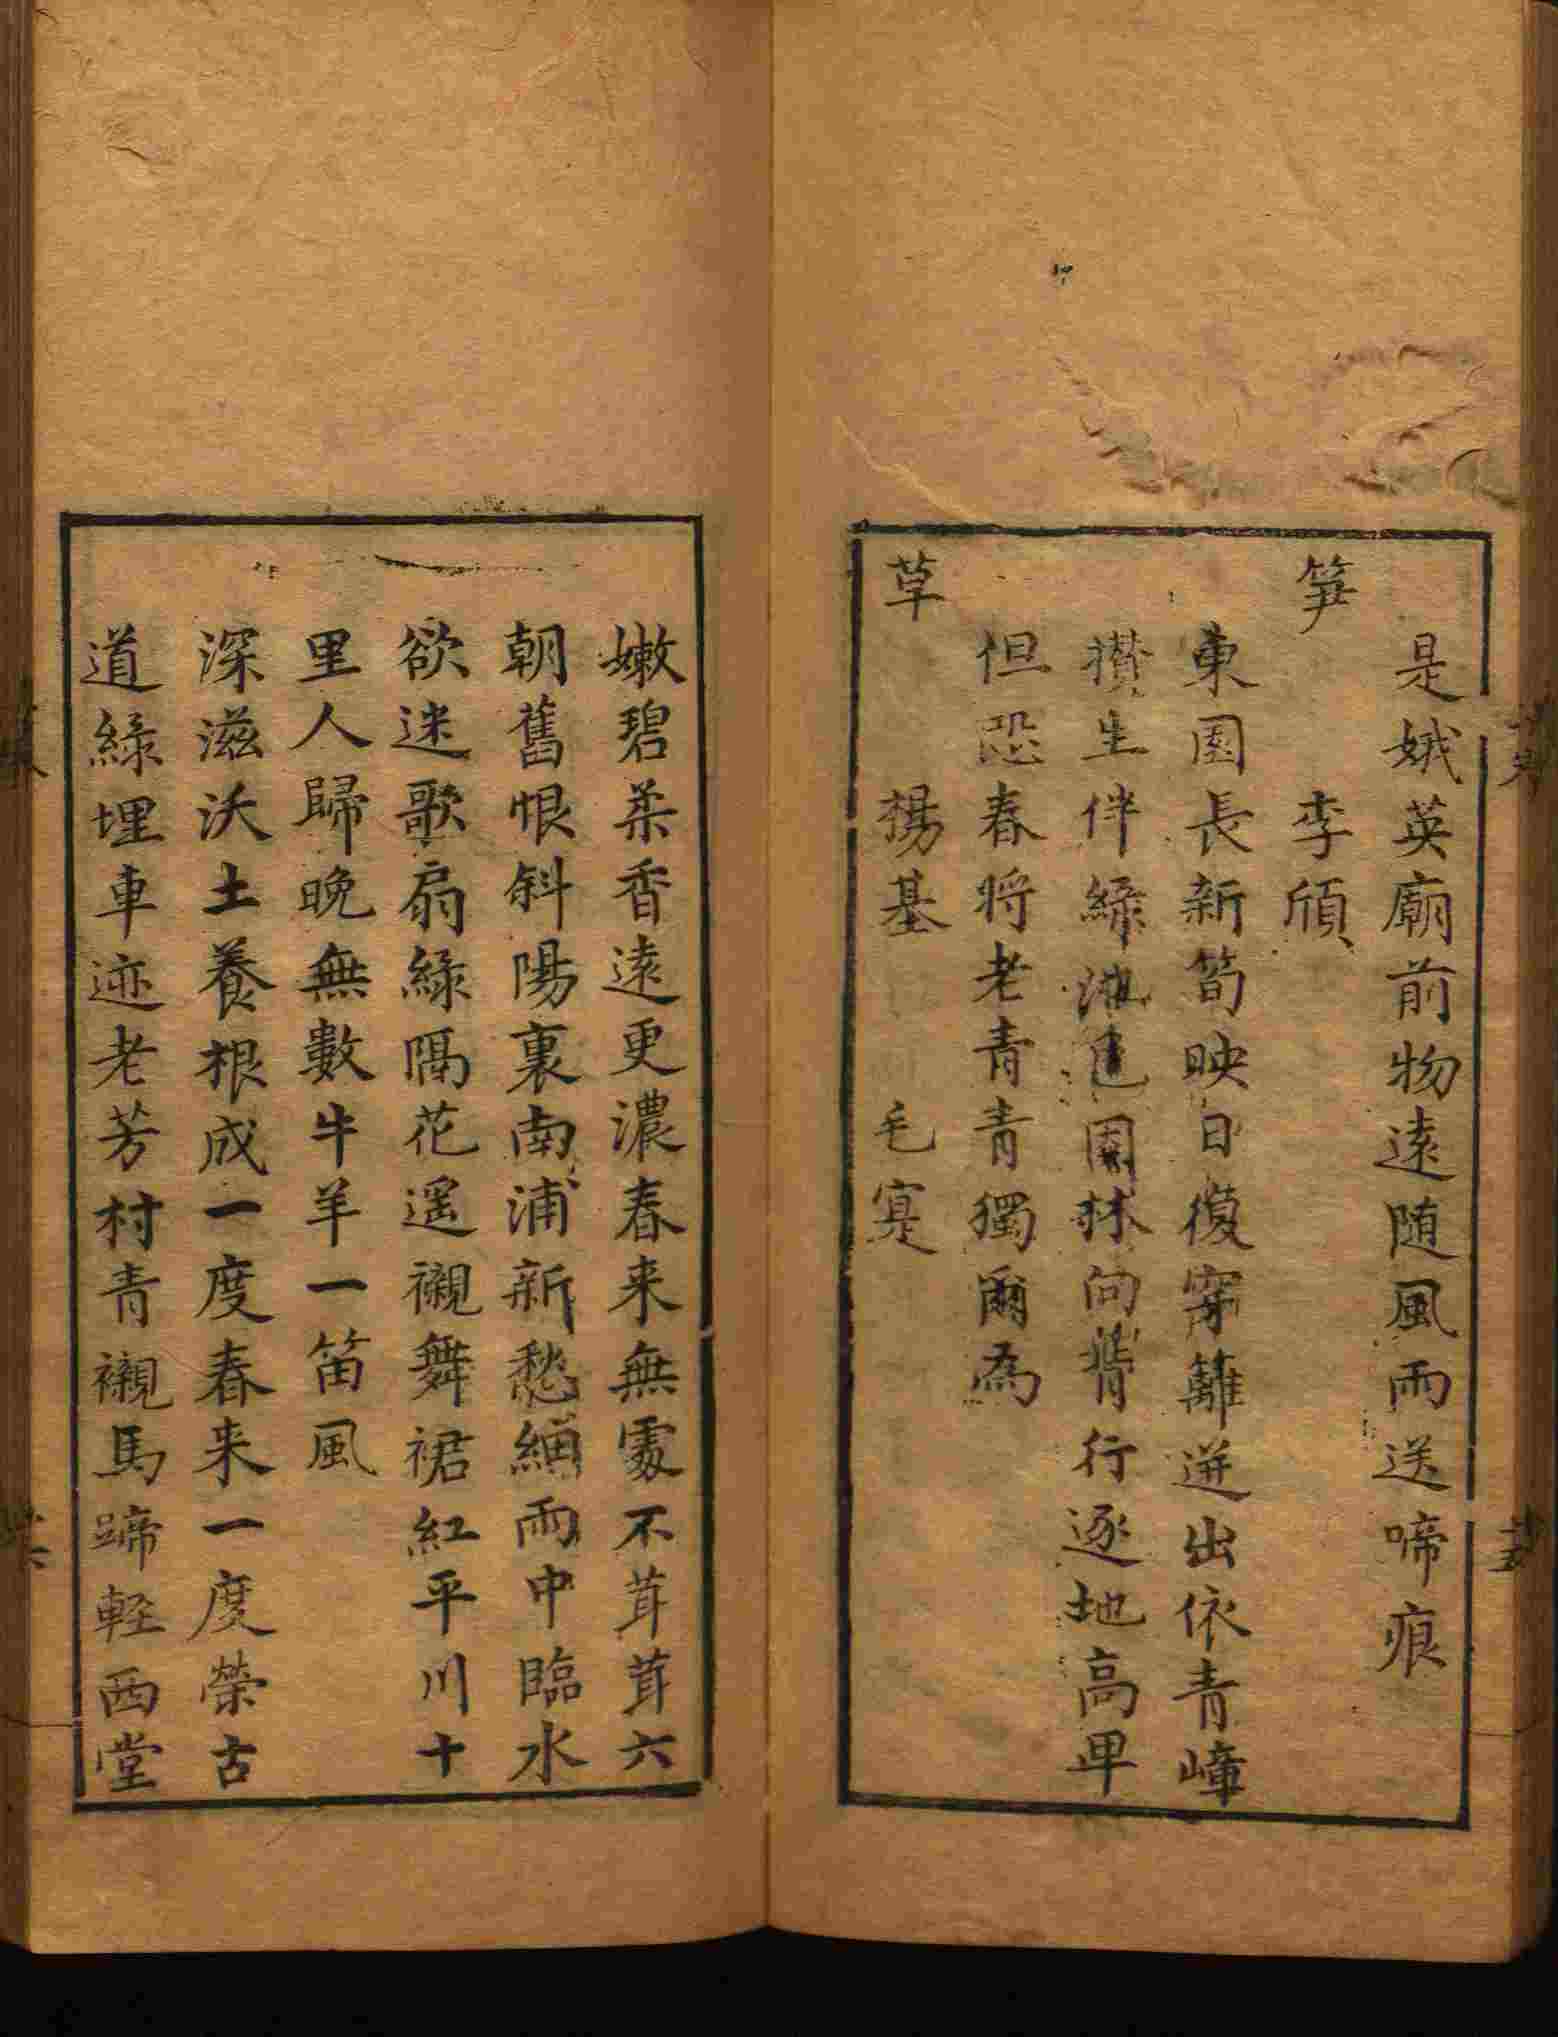 是娥英廟前物遠随風雨送啼痕
笋
李頎
東園長新筍映日復穿籬迸出依青嶂
攅生伴綠池色因林向背行逐地高卑
但恐春将老青青獨爾為
草
楊基 毛寔
嫩碧柔香遠更濃春来無處不茸茸六
朝舊恨斜陽裏南浦新愁細雨中臨水
欲迷歌扇綠隔花遥襯舞裙紅平川十
里人歸晚無數牛羊一笛風
深滋沃土養根成一度春来一度榮古
道綠埋車迹老芳村青襯馬蹄輕西堂